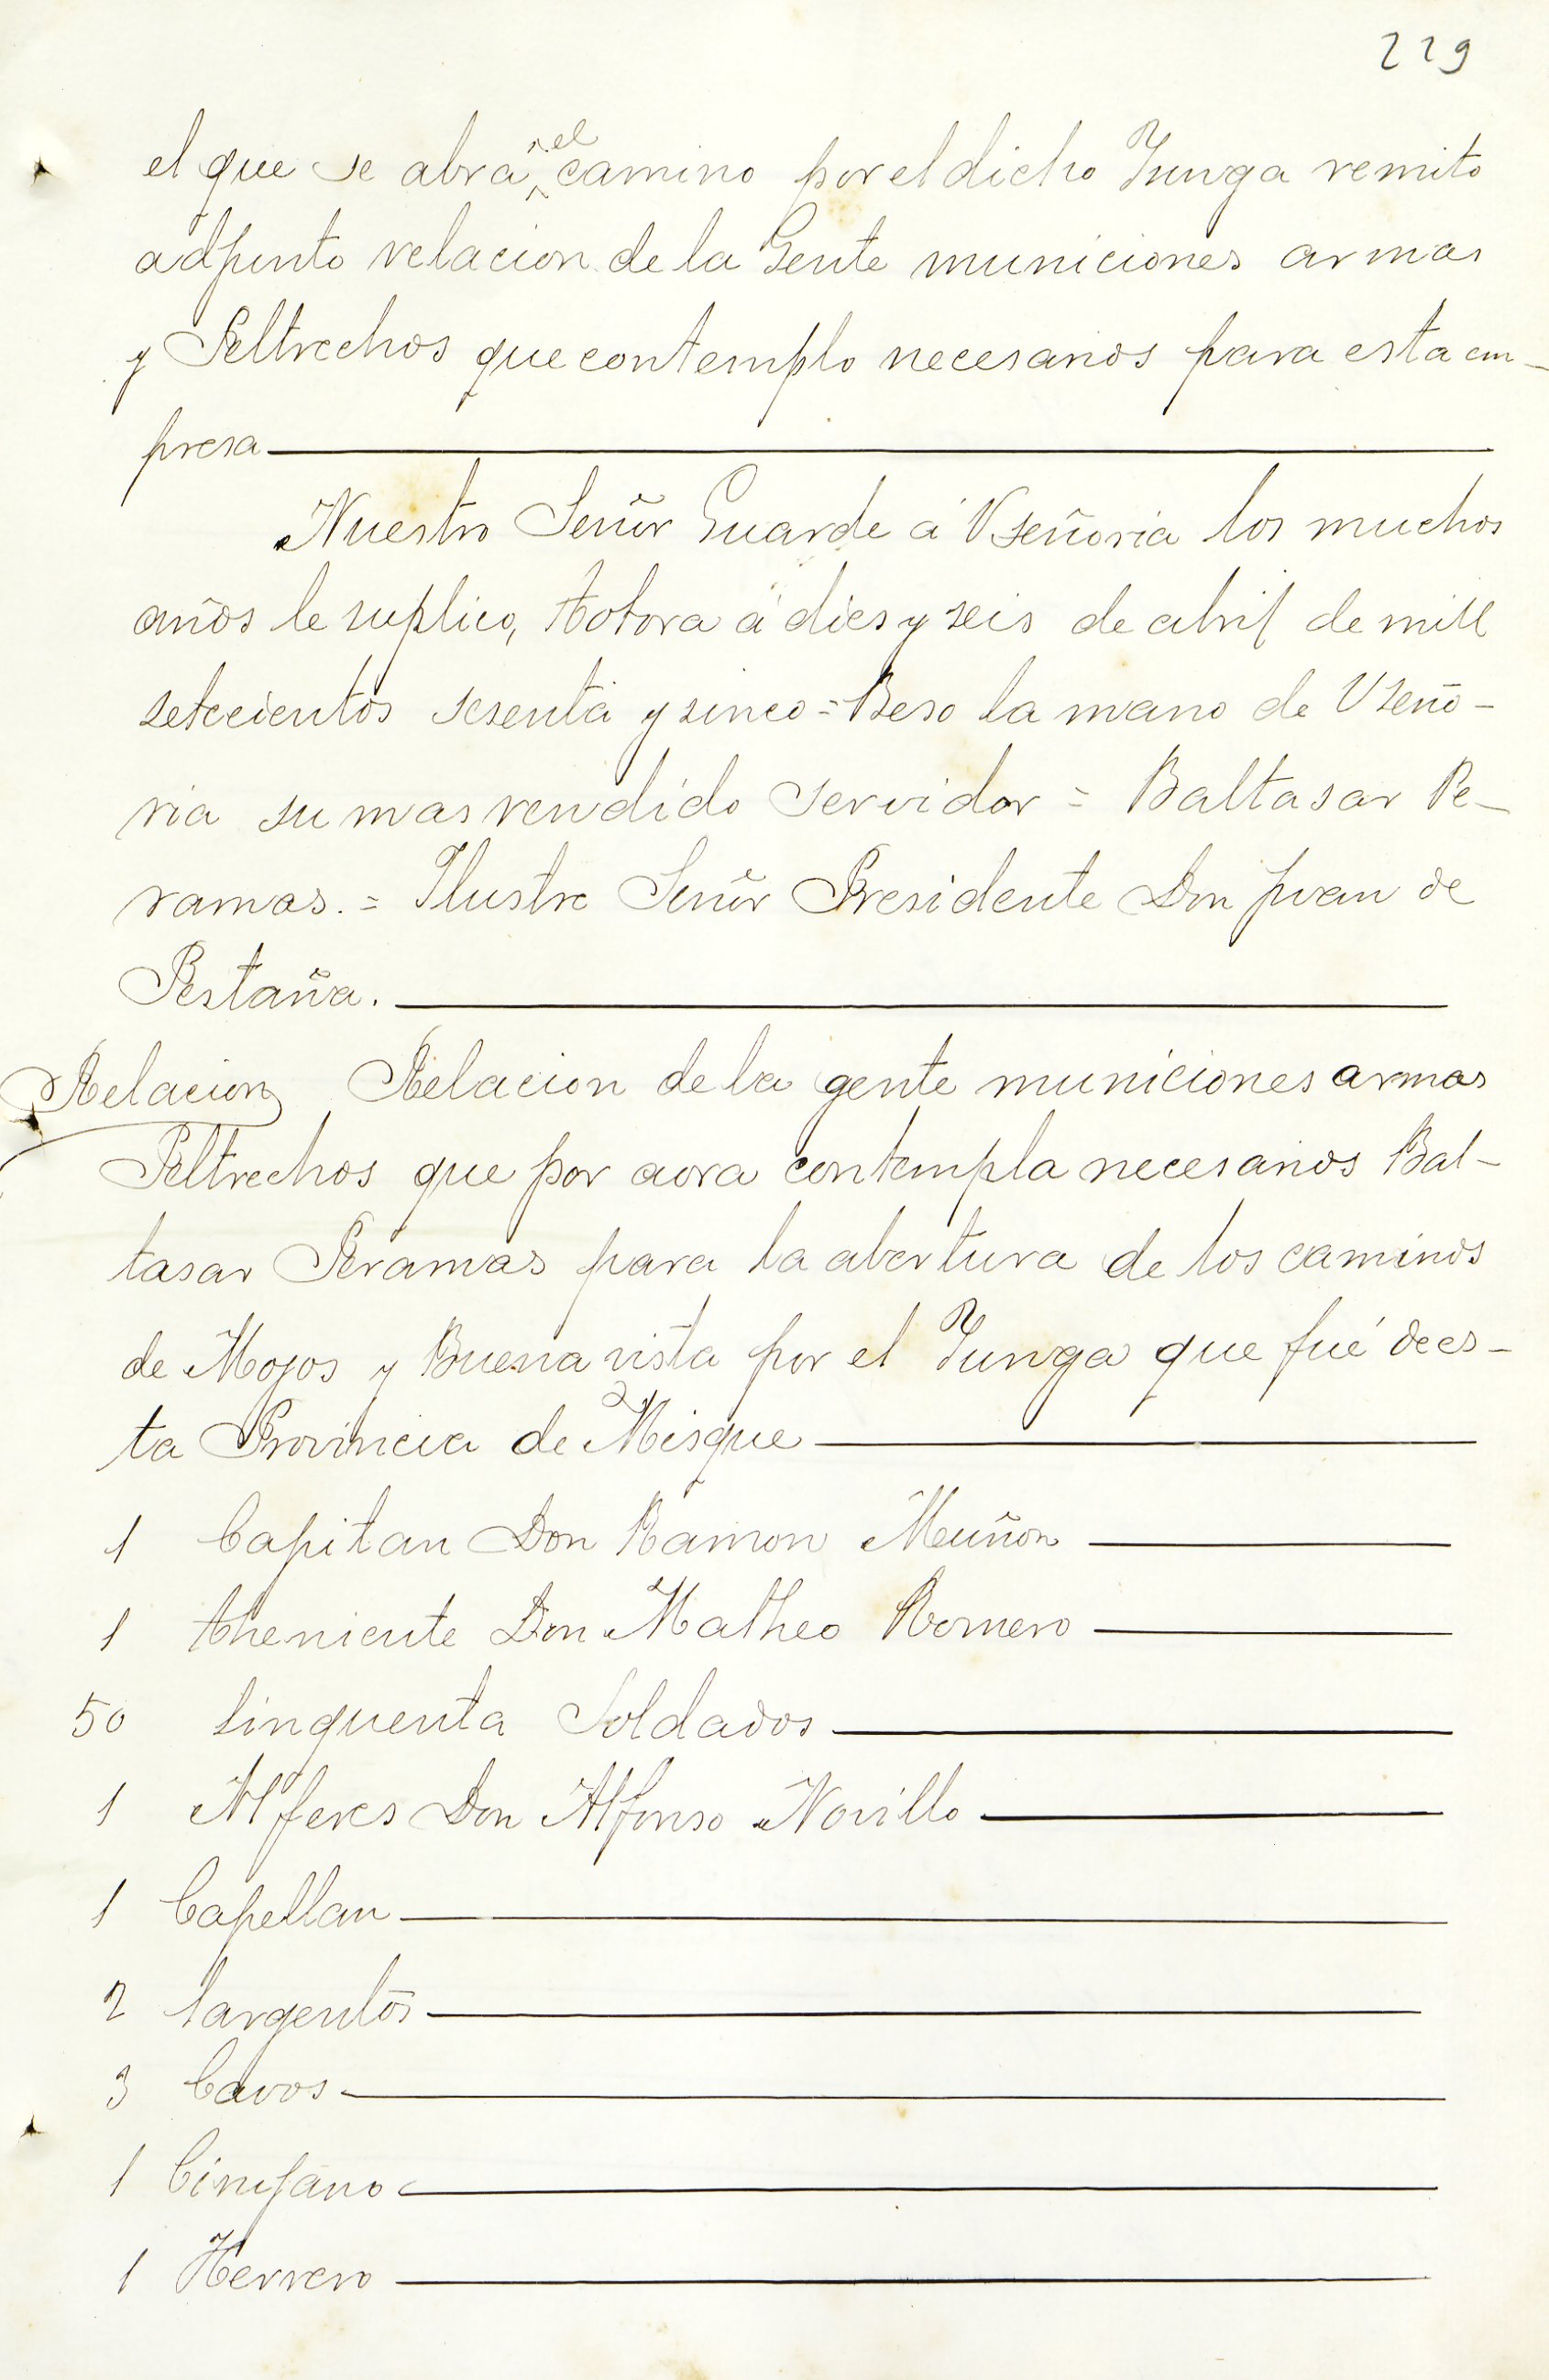 229
el que se abra el camino por el dicho Yunga remito
adjunto relacion de la Gente municiones armas
y Peltrechos que contemplo necesarios para esta em-
presa
Nuestro Señor Guarde á Vseñoria los muchos
años le suplico, totora á dies y seis de abril de mill
setecientos sesenta y sinco = Beso la mano de Vseño-
ria su mas rendido servidor = Baltasar Pe-
ramas. = Ilustre Señor Presidente Don Juan de
Pestaña.
Relacion Relacion de la gente municiones armas
Peltrechos que por aora contempla necesarios Bal-
tasar Peramas para la abertura de los caminos
de Mojos y Buena vista por el Yunga que fué de es-
ta Provincia de Misque
1 Capitan Don Ramon Muñon
1 theniente Don Matheo Romero
50 sinquenta Soldados
1 Alferes Don Alfonso Novillo
1 Capellan
2 sargentos
3 Cavos
1 Cirujano
1 Herrero